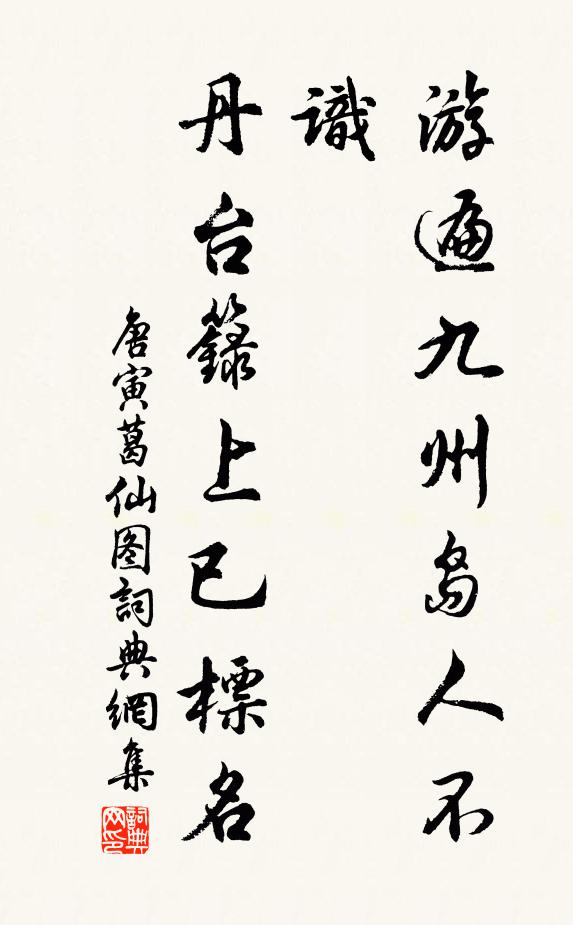 游遍九州島人不
識
丹台籙上已標名
唐寅葛仙图詞典網集
詞典網印